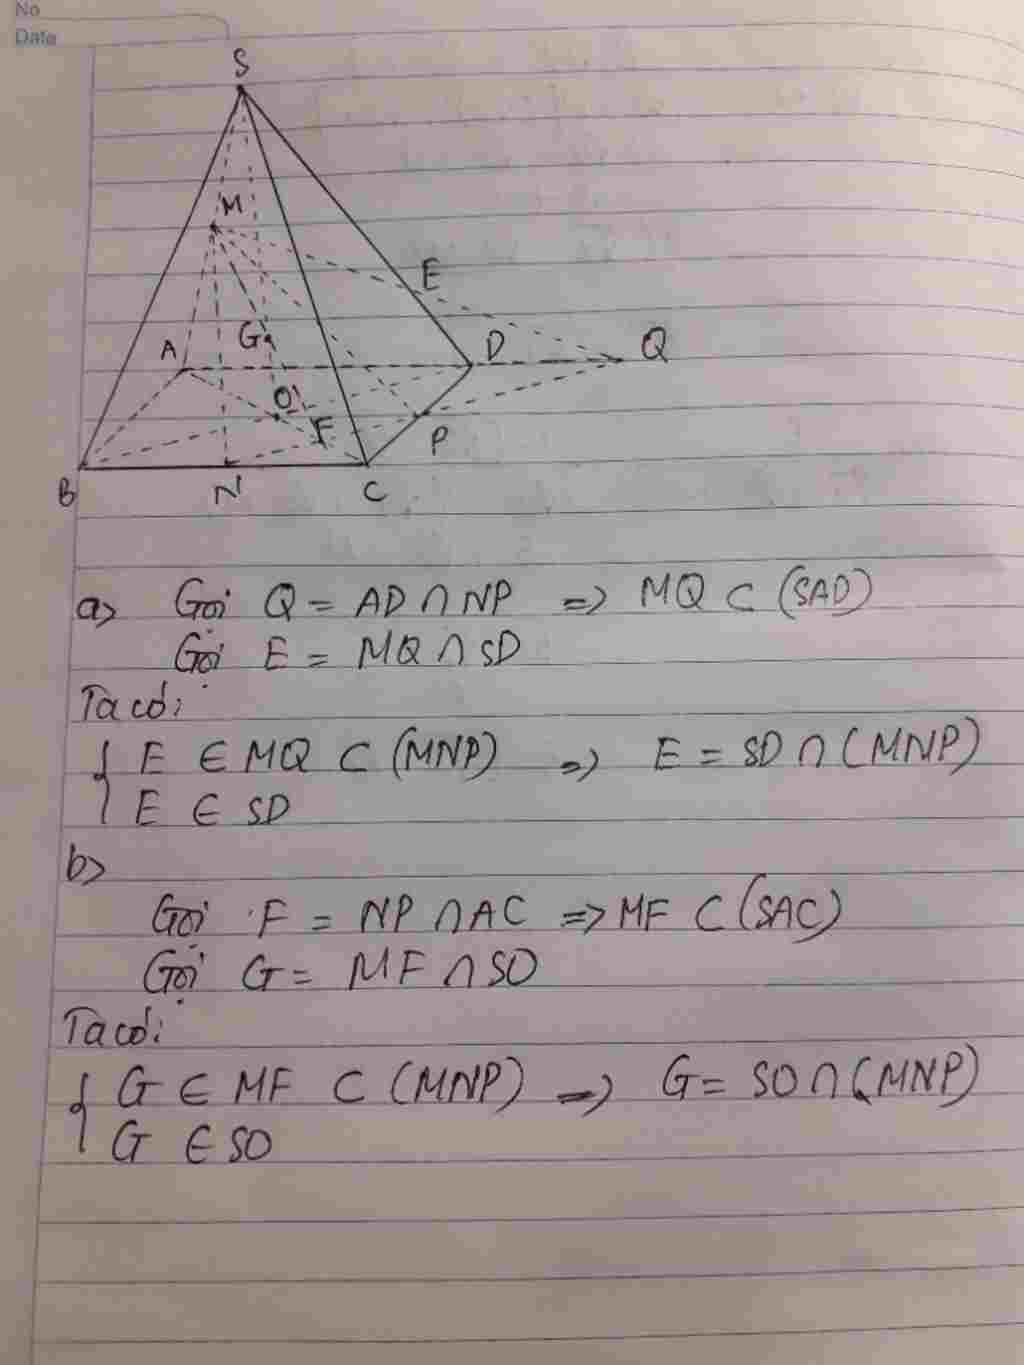 No
Date
S
M
E
A
G
D
Q
O
F
P
B
N
C
a> Gọi Q = AD ∩ NP => MQ ⊂ (SAD)
Gọi E = MQ ∩ SD
Ta có:
{ E ∈ MQ ⊂ (MNP) => E = SD ∩ (MNP)
E ∈ SD
b>
Gọi F = NP ∩ AC => MF ⊂ (SAC)
Gọi G = MF ∩ SO
Ta có:
{ G ∈ MF ⊂ (MNP) => G = SO ∩ (MNP)
G ∈ SO